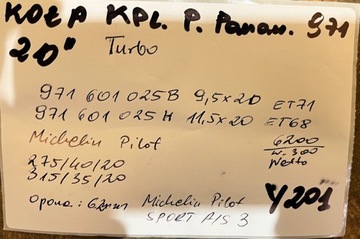 KOŁA KPL. P. Panam. 971
20" Turbo
971 601 025B 9,5x20 ET71
971 601 025H 11,5x20 ET68
Michelin Pilot 6200
275/40/20 Netto
315/35/20
Opona: 6,2mm Michelin Pilot Y201
SPORT A/S 3